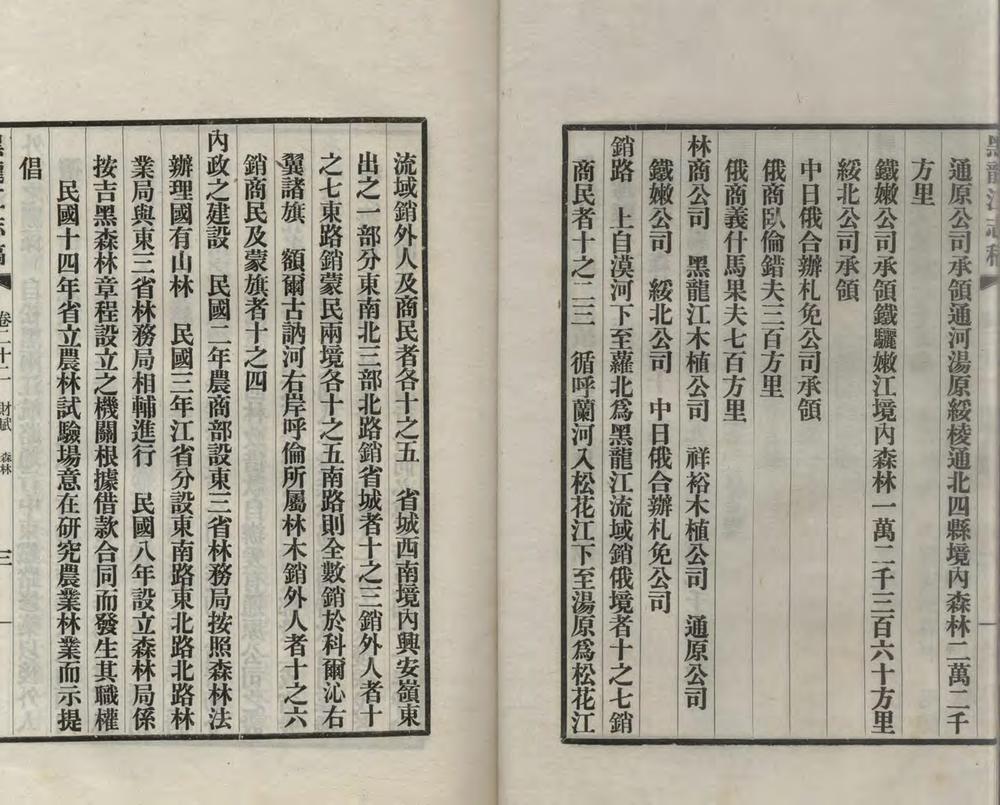 黑龍江志稿
通原公司承領通河湯原綏棱通北四縣境內森林二萬二千
方里
鐵嫩公司承領鐵驪嫩江境內森林一萬二千三百六十方里
綏北公司承領
中日俄合辦札免公司承領
俄商臥倫錯夫三百方里
俄商義什馬果夫七百方里
林商公司　黑龍江木植公司　祥裕木植公司　通原公司
鐵嫩公司　綏北公司　中日俄合辦札免公司
銷路　上自漠河下至蘿北爲黑龍江流域銷俄境者十之七銷
商民者十之二三　循呼蘭河入松花江下至湯原爲松花江
流域銷外人及商民者各十之五　省城西南境內興安嶺東
出之一部分東南北三部北路銷省城者十之三銷外人者十
之七東路銷蒙民兩境各十之五南路則全數銷於科爾沁右
翼諸旗　額爾古訥河右岸呼倫所屬林木銷外人者十之六
銷商民及蒙旗者十之四
內政之建設　民國二年農商部設東三省林務局按照森林法
辦理國有山林　民國三年江省分設東南路東北路北路林
業局與東三省林務局相輔進行　民國八年設立森林局係
按吉黑森林章程設立之機關根據借款合同而發生其職權
民國十四年省立農林試驗場意在研究農業林業而示提
倡
黑龍江志稿　卷二十一　財賦　森林　三